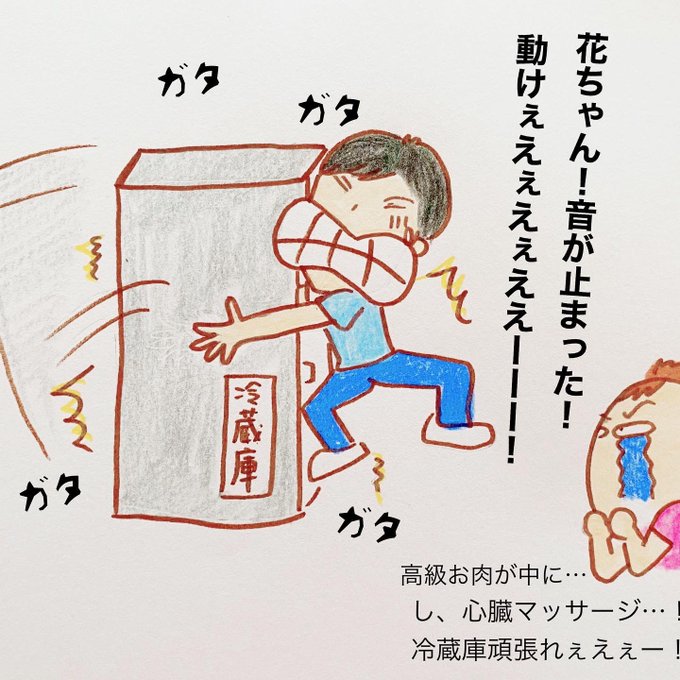 花ちゃん！音が止まった！
動けぇえぇえぇええーーー！
ガタ
ガタ
冷蔵庫
ガタ
ガタ
高級お肉が中に…
し、心臓マッサージ…！
冷蔵庫頑張れぇえぇー！